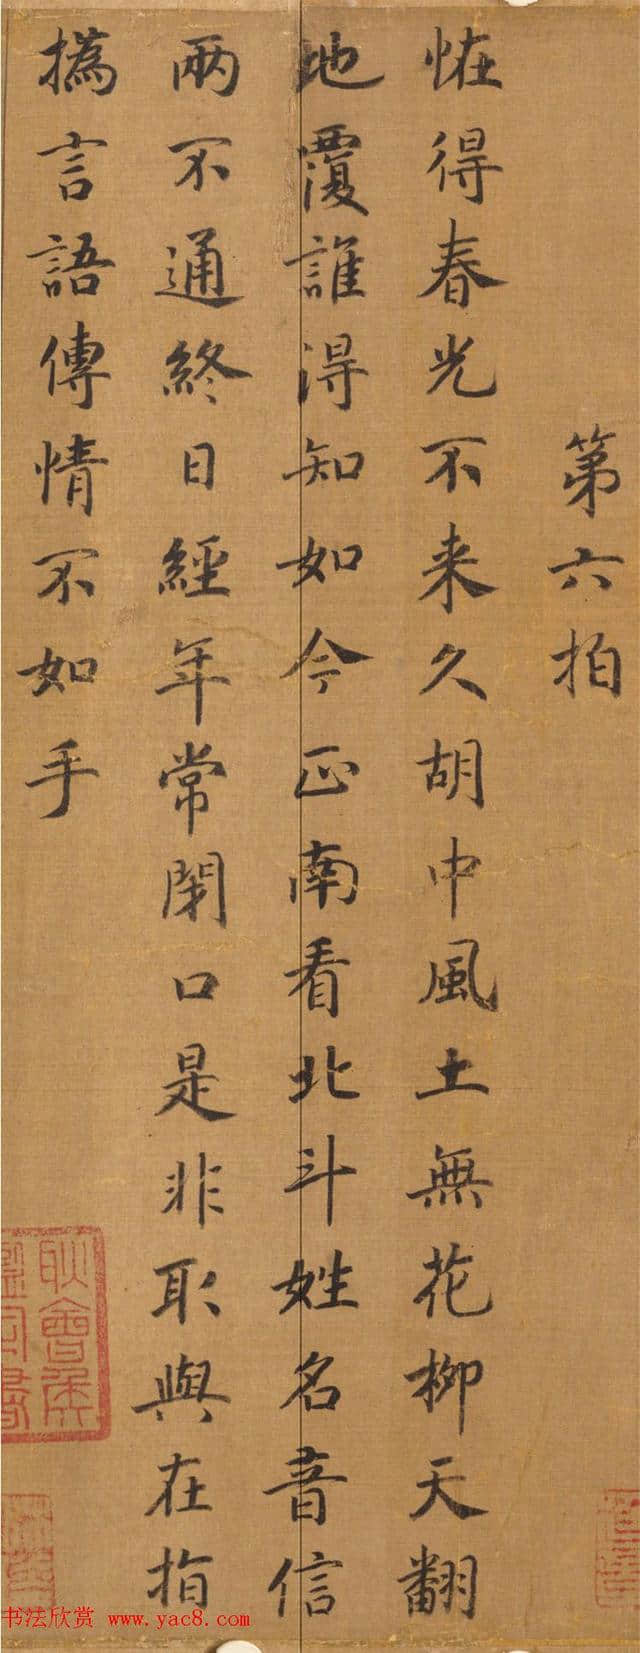 第六拍
恠得春光不来久胡中風土無花柳天翻
地覆誰得知如今正南看北斗姓名音信
兩不通終日經年常閉口是非取與在指
撝言語傳情不如手
耿會侯
鑑定書
书法欣赏 www.yac8.com